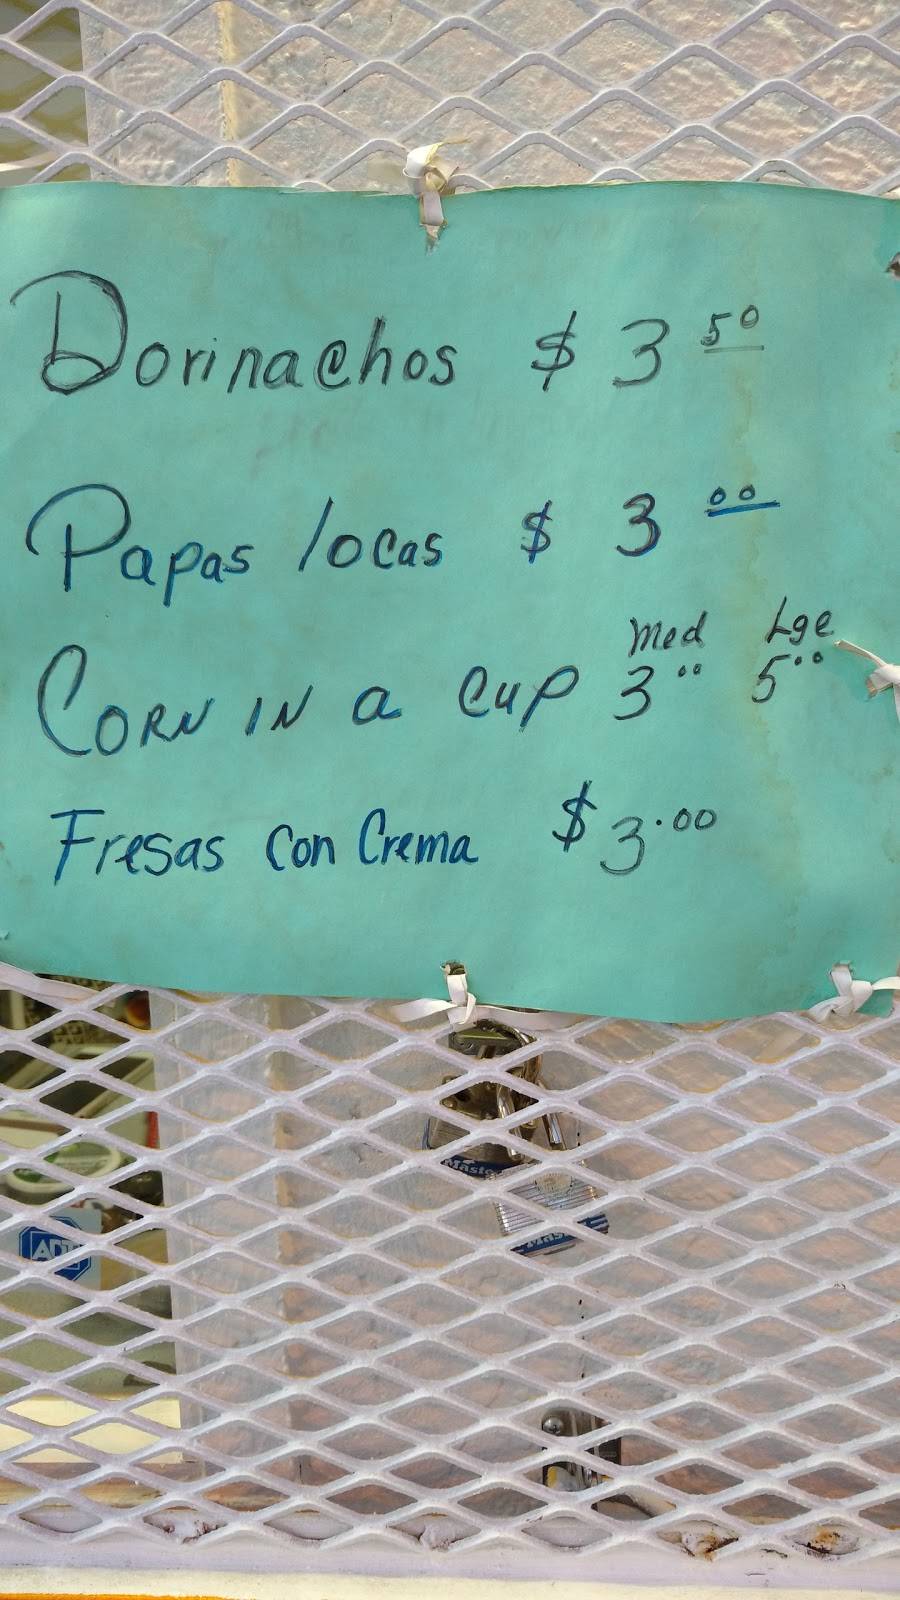 Dorinachos $ 3 50
Papas locas $ 3 00
Med Lge
Corn in a cup 3 00 5 00
Fresas con Crema $3.00
ADT
Master